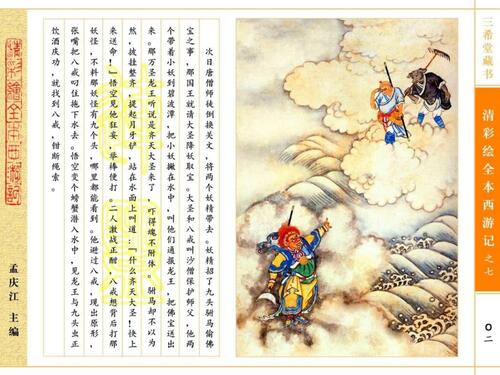 三希堂藏书
清彩绘全本西游记之七
〇二
次日唐僧师徒倒换关文，将两个妖精带去。妖精招了九头驸马偷佛
宝之事，那国王就请大圣降妖取宝。大圣和八戒叫沙僧保护师父，他两
个带着小妖到碧波潭，把小妖撇在水中，叫他们通报龙王，把佛宝送出
来。那万圣龙王听说是齐天大圣来了，吓得魂不附体。驸马却不以为
然，披挂整齐，提起月牙铲，站在水面上叫道：「什么齐天大圣！快上
来送命！」悟空见他狂妄，举棒便打。二人激战正酣，八戒想背后打那
妖怪，不料那妖怪有九个头，哪里都能看到。他避过八戒，现出原形，
张嘴把八戒叼住拖下水去。悟空变个螃蟹潜入水中，见龙王与九头虫正
饮酒庆功，就找到八戒，钳断绳索。
清彩绘全本西游记
孟庆江 主编